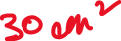 30 cm²